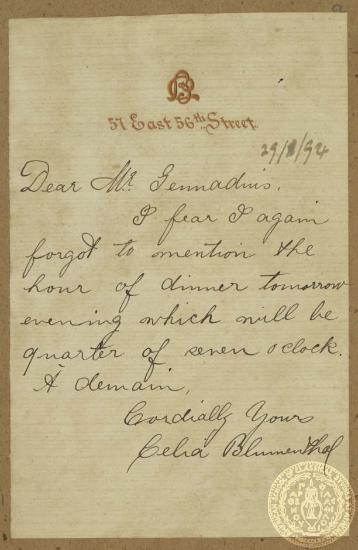 57 East 56th Street.
Dear Mr. Gennadius.
I fear I again
forgot to mention the
hour of dinner tomorrow
evening which will be
quarter of seven o'clock.
À demain,
Cordially Yours
Celia Blumenthal